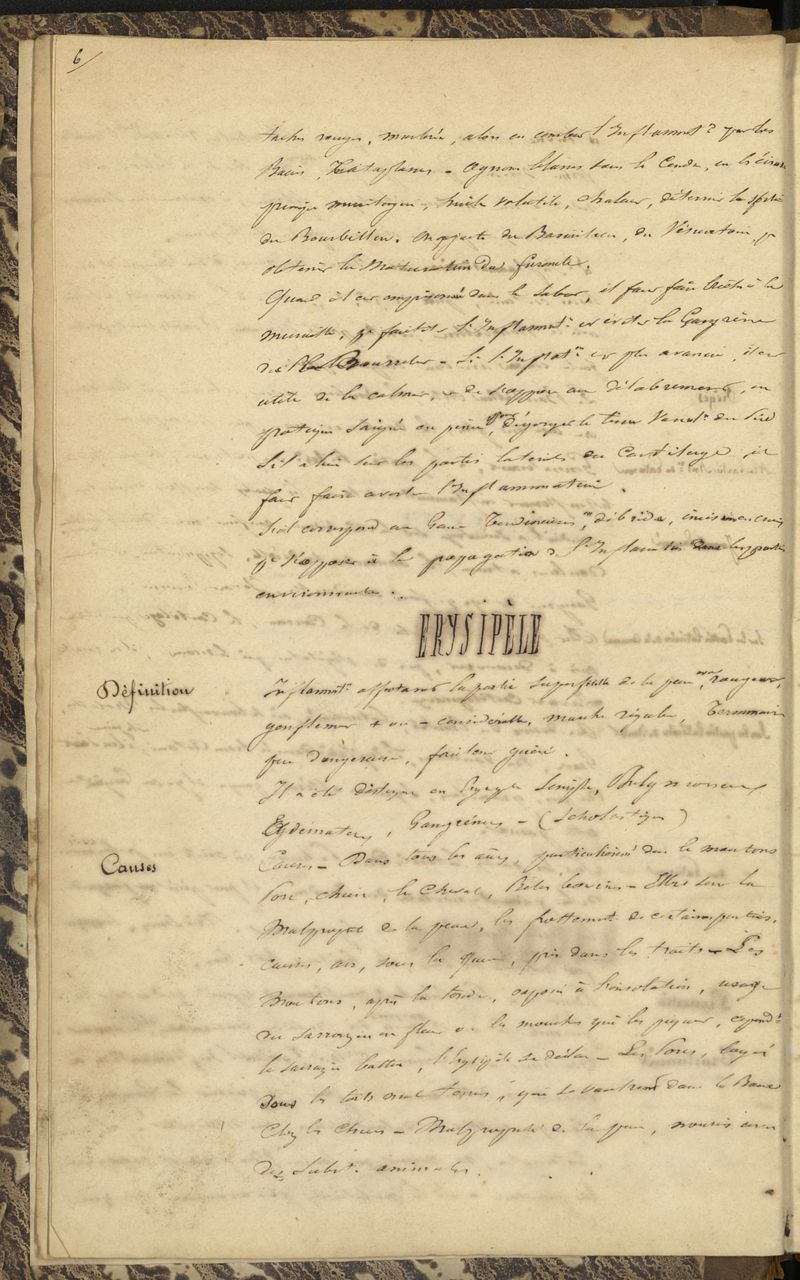 6/
taches rouges, marbrées, alors on combat l'Inflammt.
Bains, Cataplasmes - Oignon blanc sous la Cendre,
huile volatile, chaleur, détermine la sortie
du Bourbillon. On ajoute du Basilicum, du Vésicatoire, pr
obtenir la Maturation du furoncle.
Quand il est dans le Sabot, il faut faire brèche à la
muraille, pr faciliter l'Inflammt. et éviter la Gangrène
du Bourrelet - Si l'Inflat.on est plus avancée, il est
utile de la calmer, de s'opposer au délabrement, on
pratique Saignée en pince, pour dégorger le tissu du Pied
S'il a lieu sur les parties latérales du Cartilage, il
faut faire avorter l'Inflammation.
S'il correspond aux Gaines Tendineuses, on débride,
pr s'opposer à la propagation de l'Inflammation dans les parties
environnantes.
ERYSIPÈLE
Définition
Inflammt.on affectant la partie superficielle de la peau, avec rougeur,
gonflement + ou - considérable, marche régulière, Terminaison
peu dangereuse, facile à guérir.
Il a été distingué en Erysipèle Simple, Phlegmoneux,
Œdémateux, Gangréneux - (Scholastique)
Causes
Causes - Dans tous les anx, particulièremt dans le moutons
Porc, chien, le Cheval, Bêtes bovines - Elles sont la
Malpropreté de la peau, les frottements de certaines parties,
cuisses, ars, sous la queue, pris dans les traits - Les
Moutons, après la tonte, exposés à l'insolation, usage
du sarrazin en fleur où les mouches qui les piquent,
le sarrazin battu, l'Erysipèle se déclare - Les Porcs, logés
dans les toits mal tenus, qui se vautrent dans la Boue
Chez les Chiens - Malpropreté de la peau, nourris avec
des Subst. animales.